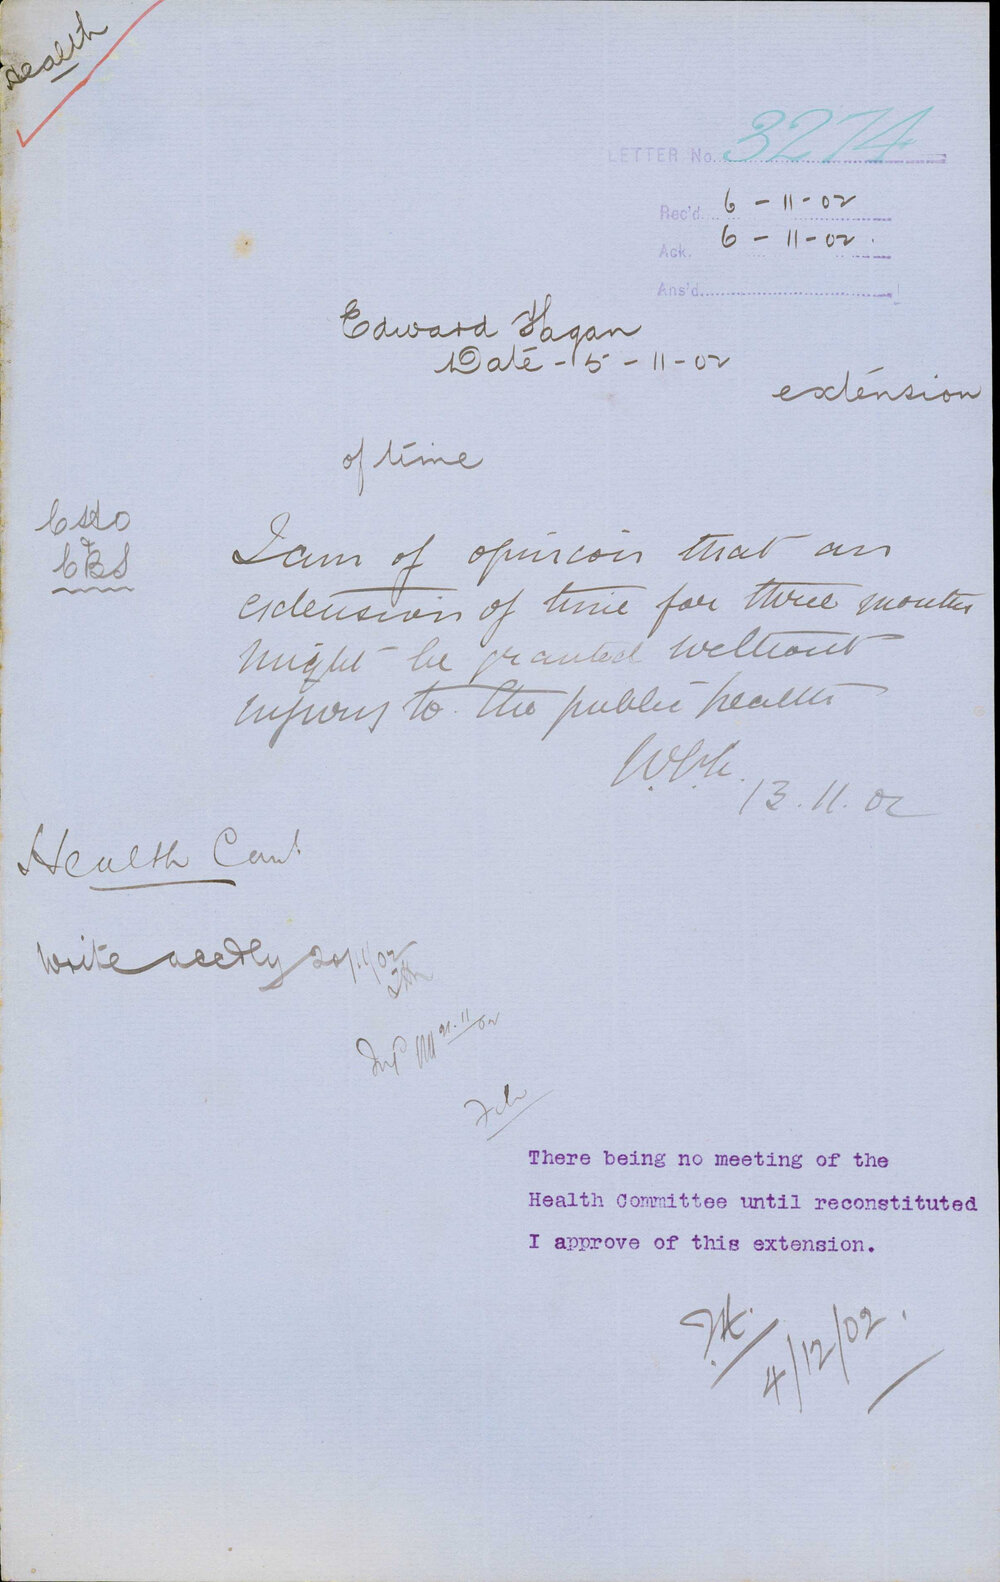 Health
LETTER No. 3274
Rec'd. 6 - 11 - 02
Ack. 6 - 11 - 02.
Ans'd.
Edward Fagan
Date - 5 - 11 - 02
extension
of time
CHO
&
CBS
I am of opinion that an
extension of time for three months
might be granted without
injury to the public health
13.11.02
Health Com!
Write accdly 20/11/02
21.11/02
There being no meeting of the
Health Committee until reconstituted
I approve of this extension.
4/12/02.